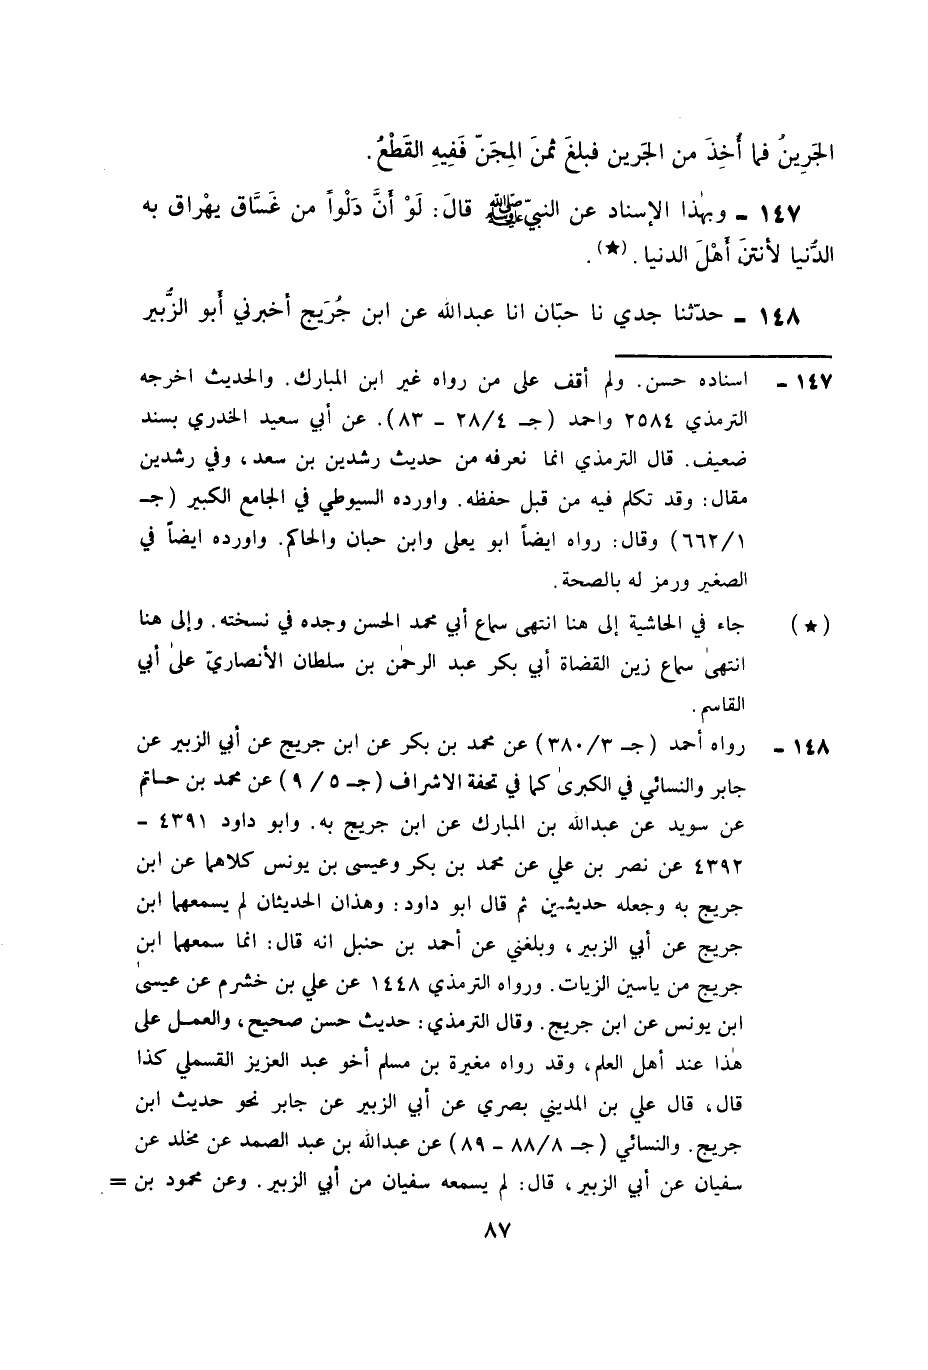 الجَرِينُ فما أُخِذَ من الجَرين فبلغَ ثمنَ المِجَنّ فَفِيهِ القَطْعُ.
١٤٧ ـ وبهٰذا الإسناد عن النبيّ ﷺ قالَ: لَوْ أَنَّ دَلْواً من غَسَّاق يهْراق به
الدُّنيا لأنتنَ أَهْلَ الدنيا. (★).
١٤٨ ـ حدّثنا جدي نا حبّان انا عبدالله عن ابن جُرَيج أخبرني أَبو الزُّبير
١٤٧ ـ اسناده حسن. ولم أقف على من رواه غير ابن المبارك. والحديث اخرجه
الترمذي ٢٥٨٤ واحمد (جـ ٢٨/٤ ـ ٨٣). عن أبي سعيد الخدري بسند
ضعيف. قال الترمذي انما نعرفه من حديث رشدين بن سعد، وفي رشدين
مقال: وقد تكلم فيه من قبل حفظه. واورده السيوطي في الجامع الكبير (جـ
٦٦٢/١) وقال: رواه ايضاً ابو يعلى وابن حبان والحاكم. واورده ايضاً في
الصغير ورمز له بالصحة.
(★) جاء في الحاشية إلى هنا انتهى سماع أبي محمد الحسن وجده في نسخته. وإلى هنا
انتهىٰ سماع زين القضاة أبي بكر عبد الرحمٰن بن سلطان الأنصاريّ علىٰ أبي
القاسم.
١٤٨ ـ رواه أحمد (جـ ٣٨٠/٣) عن محمد بن بكر عن ابن جريج عن أبي الزبير عن
جابر والنسائي في الكبرىٰ كما في تحفة الاشراف (جـ ٥ / ٩) عن محمد بن حاتم
عن سويد عن عبدالله بن المبارك عن ابن جريج به. وابو داود ٤٣٩١ ـ
٤٣٩٢ عن نصر بن علي عن محمد بن بكر وعيسى بن يونس كلاهما عن ابن
جريج به وجعله حديثين ثم قال ابو داود: وهذان الحديثان لم يسمعهما ابن
جريج عن أبي الزبير، وبلغني عن أحمد بن حنبل انه قال: انما سمعهما ابن
جريج من ياسين الزيات. ورواه الترمذي ١٤٤٨ عن علي بن خشرم عن عيسىٰ
ابن يونس عن ابن جريج. وقال الترمذي: حديث حسن صحيح، والعمل على
هٰذا عند أهل العلم، وقد رواه مغيرة بن مسلم أخو عبد العزيز القسملي كذا
قال، قال علي بن المديني بصري عن أبي الزبير عن جابر نحو حديث ابن
جريج. والنسائي (جـ ٨٨/٨ ـ ٨٩) عن عبدالله بن عبد الصمد عن مخلد عن
سفيان عن أبي الزبير، قال: لم يسمعه سفيان من أبي الزبير. وعن محمود بن =
٨٧